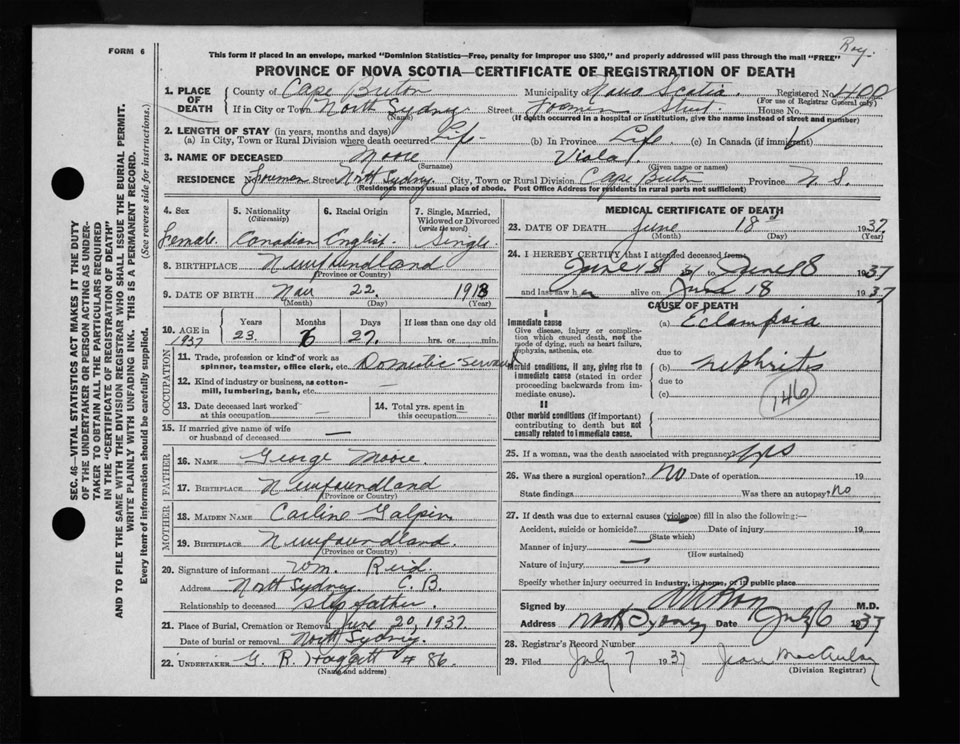 Roy.
FORM 6
This form if placed in an envelope, marked "Dominion Statistics—Free, penalty for improper use $300," and properly addressed will pass through the mail "FREE"
PROVINCE OF NOVA SCOTIA—CERTIFICATE OF REGISTRATION OF DEATH
1. PLACE OF DEATH
County of Cape Breton Municipality of Nova Scotia. Registered No. 400
(For use of Registrar General only)
If in City or Town North Sydney Street House No.
(Name)
(If death occurred in a hospital or institution, give the name instead of street and number)
2. LENGTH OF STAY (in years, months and days)
(a) In City, Town or Rural Division where death occurred Life. (b) In Province Life. (c) In Canada (if immigrant)
3. NAME OF DECEASED Moore Viola
(Surname) (Given name or names)
RESIDENCE Street North Sydney City, Town or Rural Division Cape Breton Province N. S.
(Residence means usual place of abode. Post Office Address for residents in rural parts not sufficient)
4. Sex
Female
5. Nationality
(Citizenship)
Canadian
6. Racial Origin
English.
7. Single, Married, Widowed or Divorced
(write the word)
Single
8. BIRTHPLACE Newfoundland
(Province or Country)
9. DATE OF BIRTH Nov 22 1913
(Month) (Day) (Year)
10. AGE in 1937
Years Months Days If less than one day old
23. 6 27. hrs. or min.
OCCUPATION
11. Trade, profession or kind of work as
spinner, teamster, office clerk, etc. Domestic Servant
12. Kind of industry or business, as cotton-
mill, lumbering, bank, etc. —
13. Date deceased last worked
at this occupation —
14. Total yrs. spent in
this occupation
15. If married give name of wife
or husband of deceased —
FATHER
16. NAME George Moore.
17. BIRTHPLACE Newfoundland
(Province or Country)
MOTHER
18. MAIDEN NAME Carline Galpin
19. BIRTHPLACE Newfoundland.
(Province or Country)
20. Signature of informant Wm. Reid.
Address North Sydney C. B.
Relationship to deceased step father.
21. Place of Burial, Cremation or Removal June 20, 1937.
Date of burial or removal North Sydney.
22. UNDERTAKER G. R. Haggett # 86.
(Name and address)
MEDICAL CERTIFICATE OF DEATH
23. DATE OF DEATH June 18 1937
(Month) (Day) (Year)
24. I HEREBY CERTIFY that I attended deceased from
June 1st to June 18 1937
and last saw her alive on June 18 1937
CAUSE OF DEATH
I
Immediate cause
Give disease, injury or complica-
tion which caused death, not the
mode of dying, such as heart failure,
asphyxia, asthenia, etc.
(a) Eclampsia
due to
Morbid conditions, if any, giving rise to
immediate cause (stated in order
proceeding backwards from im-
mediate cause).
(b) nephritis
due to
(c)
146
II
Other morbid conditions (if important)
contributing to death but not
causally related to immediate cause.
25. If a woman, was the death associated with pregnancy? yes
26. Was there a surgical operation? No Date of operation 19
State findings Was there an autopsy? no
27. If death was due to external causes (violence) fill in also the following:—
Accident, suicide or homicide? Date of injury 19
(State which)
Manner of injury —
(How sustained)
Nature of injury —
Specify whether injury occurred in industry, in home, or in public place
Signed by M.D.
Address North Sydney Date July 6 1937
28. Registrar's Record Number
29. Filed July 7 1937 Jean MacAulay
(Division Registrar)
SEC. 46—VITAL STATISTICS ACT MAKES IT THE DUTY
OF THE UNDERTAKER OR PERSON ACTING AS UNDER-
TAKER TO OBTAIN ALL THE PARTICULARS REQUIRED
IN THE "CERTIFICATE OF REGISTRATION OF DEATH"
AND TO FILE THE SAME WITH THE DIVISION REGISTRAR WHO SHALL ISSUE THE BURIAL PERMIT.
WRITE PLAINLY WITH UNFADING INK. THIS IS A PERMANENT RECORD.
Every item of information should be carefully supplied. (See reverse side for instructions.)